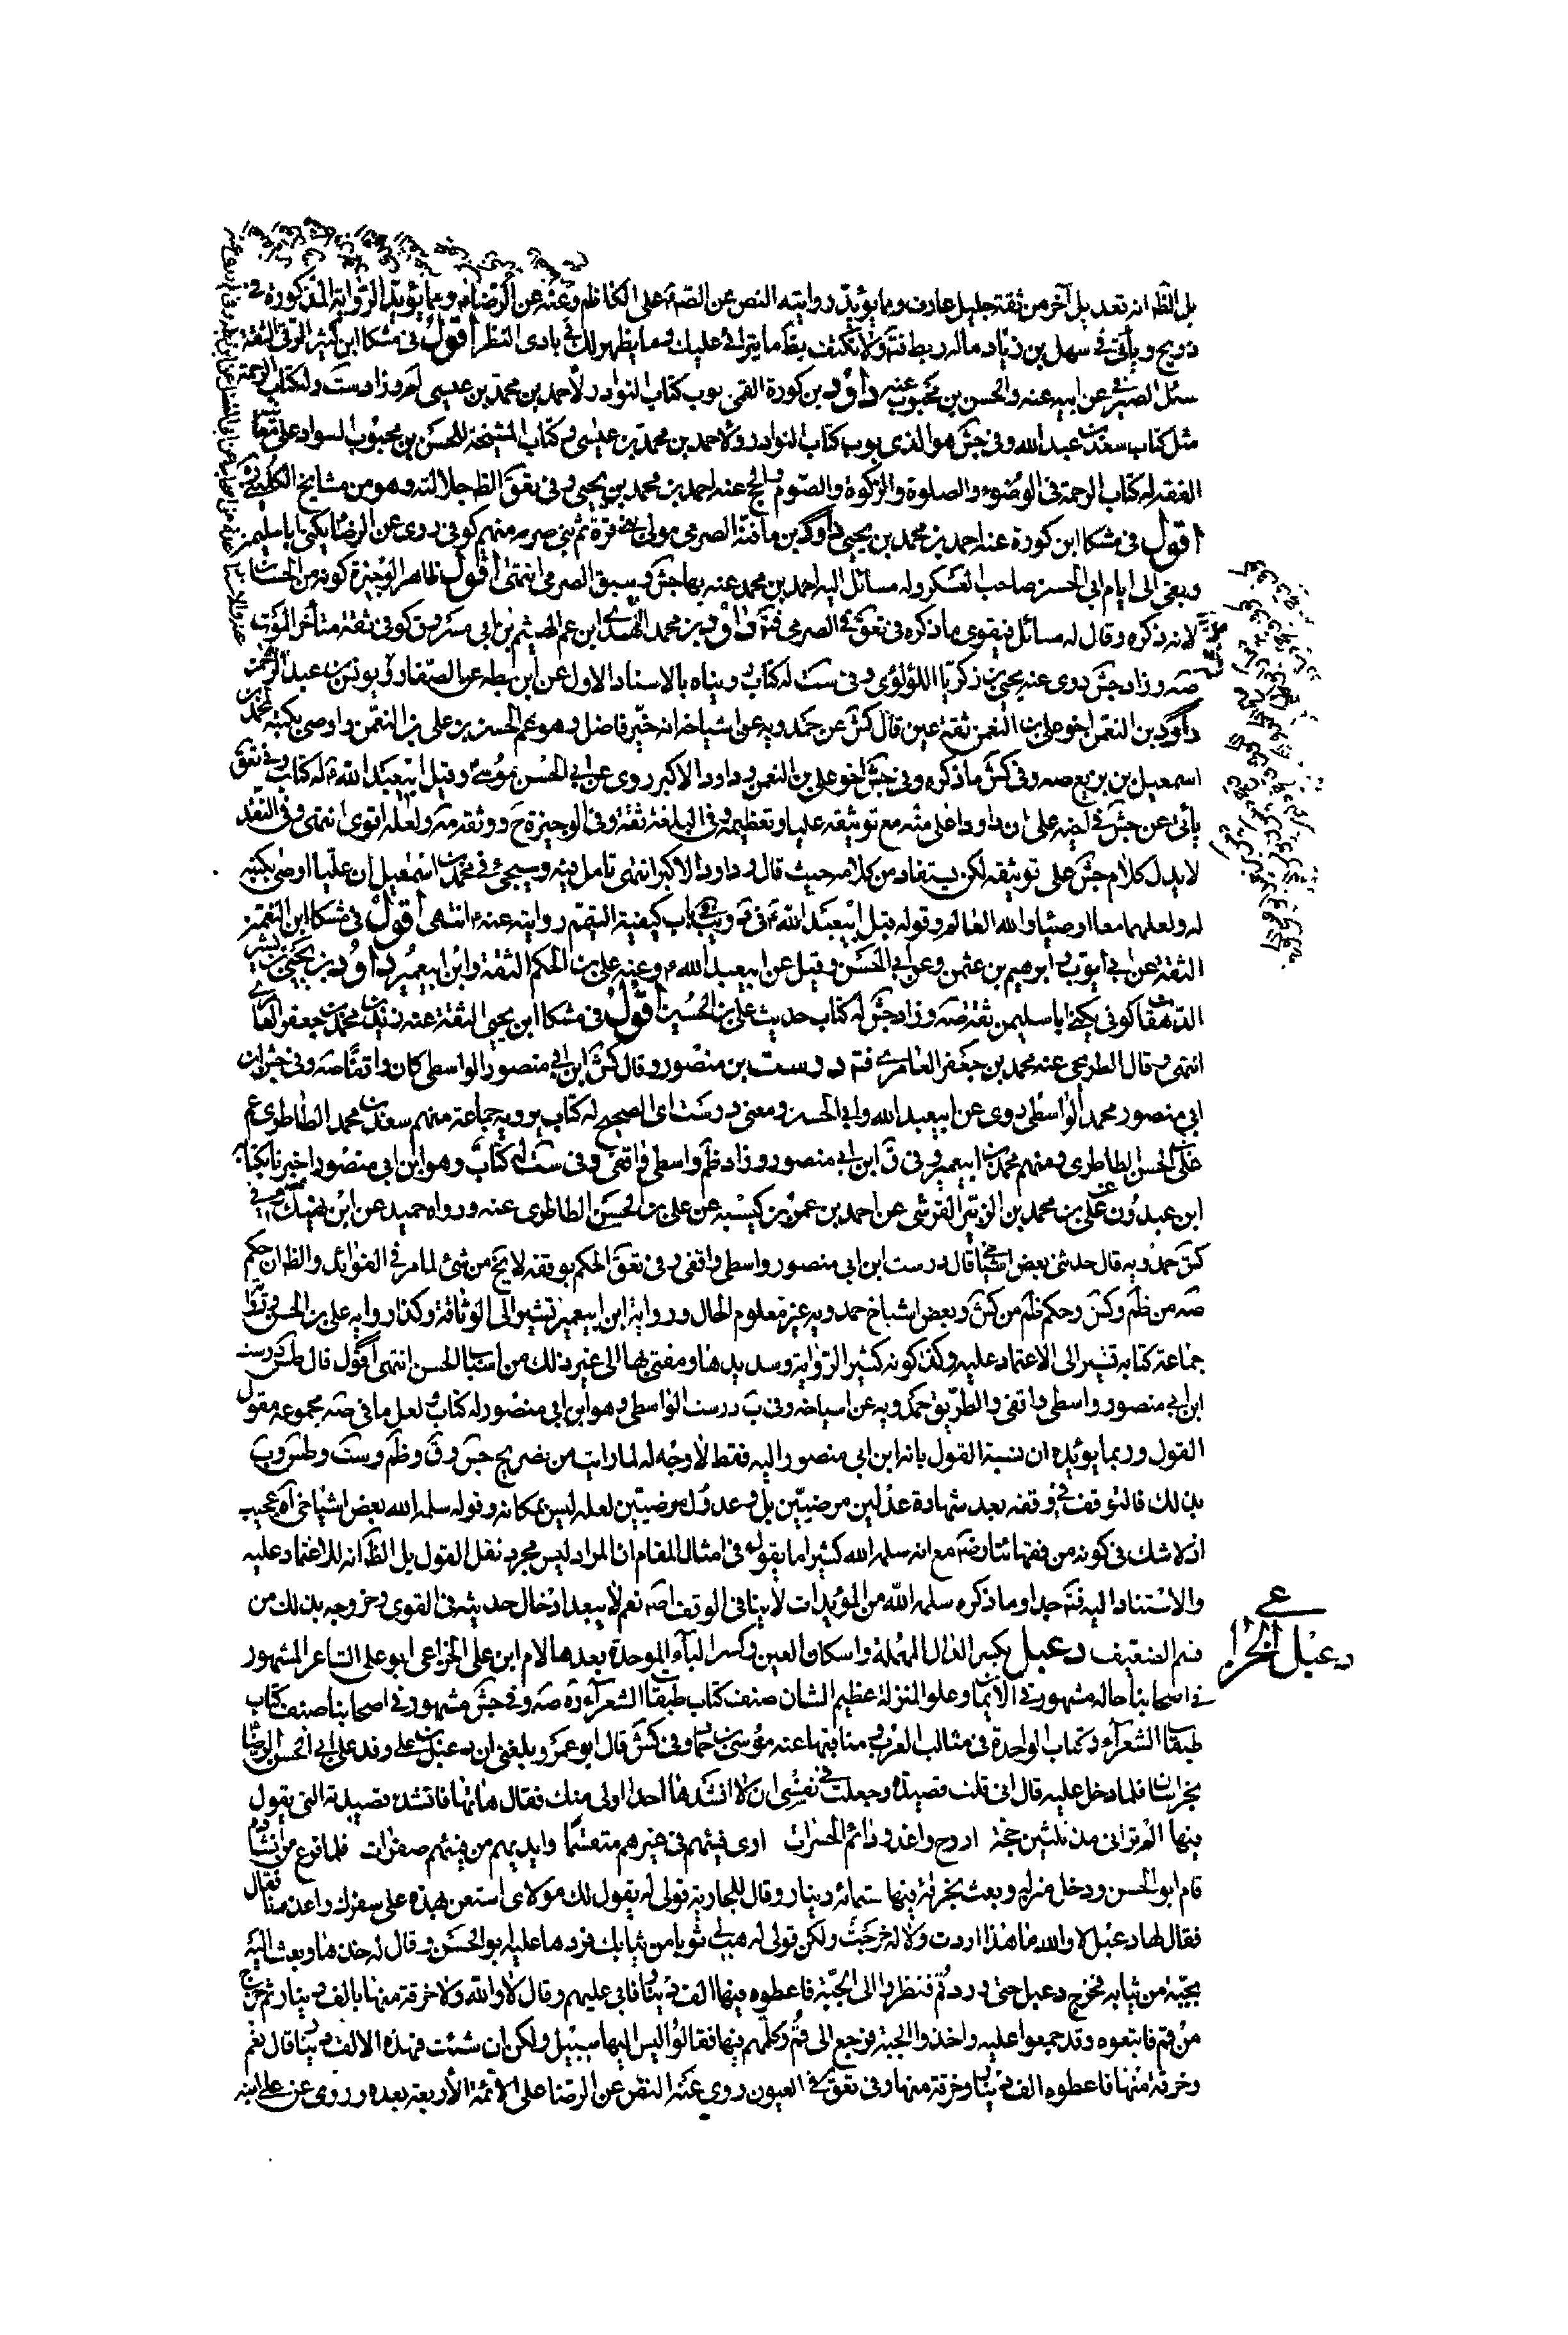 بل الظ انه تعديل آخر من ثقة جليل عارف ومما يؤيد روايته النص عن الصم على الكاظم وعنه عن الرضا ومما يؤيد الرواية المذكورة في
ذريح ويأتي في سهل بن زياد ماله ربط فتم ولا تكتف بظ ما يترائى عليك وما يظهر لك في بادي النظر أقول في مشكا ابن كثير الرقي الثقة
عن ابيه عنه والحسن بن محبوب عنه داود بن كورة القمي بوب كتاب النوادر لأحمد بن محمد بن عيسى لم وزاد ست وله كتاب الرحمة
مثل كتاب سعد بن عبد الله وفي جش هو الذي بوب كتاب النوادر ولاحمد بن محمد بن عيسى وكتاب المشيخة للحسن بن محبوب السراد على معا
الفقه له كتاب الرحمة في الوضوء والصلوة والزكوة والصوم والحج عنه احمد بن محمد بن يحيى وفي تعق الظ جلالته وهو من مشايخ الكليني ره
أقول في مشكا ابن كورة عنه احمد بن محمد بن يحيى داود بن مافنة الصرمي مولى بني قرة ثم بني صرمه منهم كوفي روى عن الرضا يكنى ابا سليمن
وبقي الى ايام ابي الحسن صاحب العسكر وله مسائل اليه احمد بن محمد عنه بها جش وسبق الصرمي انتهى أقول ظاهر الوجيزة كونه من الحسان
لانه ذكره وقال له مسائل فيقوى ما ذكره في تعق في الصرمي فتم داود بن محمد النهدي ابن عم الهيثم بن ابي مسروق كوفي ثقة متأخر الموت
صه وزاد جش روى عنه يحيى بن زكريا اللؤلؤي وفي ست له كتاب رويناه بالاسناد الاول عن ابن بطه عن الصفار ويونس بن عبد الرحمن
داود بن النعمن اخو علي بن النعمن ثقة عين قال كش عن حمدويه عن اشياخه انه خير فاضل وهو عم الحسن بن علي بن النعمن واوصى بكتبه لمحمد بن
اسمعيل بن بزيع صه وفي كش ما ذكره وفي جش اخو علي بن النعمن وداود الاكبر روى عن ابي الحسن موسى وقيل ابيعبد الله له كتاب وفي تعق
يأتي عن جش في اخيه علي ان داود اعلى منه مع توثيقه عليا وتعظيمه وفي البلغة ثقة وفي الوجيزة ح ووثقه مه ولعله اقوى انتهى وفي النقد
لا يدل كلام جش على توثيقه لكن يستفاد من كلامه حيث قال وداود الاكبر انتهى تامل فيه وسيجئ في محمد بن اسمعيل ان عليا اوصى بكتبه
له ولعلهما معا اوصيا والله العالم وقوله قيل ابيعبد الله في باب كيفية التيمم روايته عنه انتهى أقول في مشكا ابن النعمن
الثقة عن ابي ايوب ابرهيم بن عثمن وعن ابي الحسن وقيل عن ابيعبد الله وعنه علي بن الحكم الثقة وابن ابيعمير داود بن يحيى بن بشير
الدهقان كوفي يكنى ابا سليمن ثقة صه وزاد جش له كتاب حديث علي بن الحسين أقول في مشكا ابن يحيى الثقة عنه محمد بن جعفر العامري
انتهى وقال الطريحي عنه محمد بن جعفر العامري فتم درست بن منصور وقال كش ابن ابي منصور الواسطي كان واقفا صه وفي جش ابن
ابي منصور محمد الواسطي روى عن ابيعبد الله وابي الحسن ومعنى درست اي الصحيح له كتاب يرويه جماعة منهم سعد بن محمد الطاطري عم
علي بن الحسن الطاطري ومنهم محمد بن ابيعمير وفي ق ابن ابي منصور وزاد ظم واسطي واقفي وفي ست له كتاب وهو ابن ابي منصور اخبرنا بكتابه
ابن عبدون عن علي بن محمد بن الزبير القرشي عن احمد بن عمر بن كيسبه عن علي بن الحسن الطاطري عنه ورواه حميد عن ابن نهيك عنه وفي
كش حمدويه قال حدثني بعض اشياخي قال درست ابن ابي منصور واسطي واقفي وفي تعق الحكم بوقفه لا يخ من شئ لما مر في الفوائد والظ ان حكم
صه من ظم وكش وحكم ظم من كش وبعض اشياخ حمدويه غير معلوم الحال ورواية ابن ابيعمير تشير الى الوثاقة وكذا رواية علي بن الحسن ورواية
جماعة كتابه تشير الى الاعتماد عليه وكذا كونه كثير الرواية وسديدها ومفتى بها الى غير ذلك من اسباب الحسن انتهى أقول قال طس درست
ابن ابي منصور واسطي واقفي والطريق حمدويه عن اشياخه وفي ب درست الواسطي وهو ابن ابي منصور له كتاب لعل ما في صه مجموعه مقول
القول وربما يؤيده ان نسبة القول بانه ابن ابي منصور اليه فقط لا وجه له لما رايت من تصريح جش وق وظم وست وطس وب
بذلك فالتوقف في وقفه بعد شهادة عدلين مرضيين بل وعدول مرضيين لعله ليس بمكانه وقوله سلمه الله بعض اشياخي آه عجيب
اذ لا شك في كونه من فقهائنا رضه مع انه سلمه الله كثيرا ما يقول في امثال المقام ان المراد ليس مجرد نقل القول بل الظ انه للاعتماد عليه
والاستناد اليه فتم جدا وما ذكره سلمه الله من المؤيدات لا ينافي الوقف اصه نعم لا يبعد ادخال حديثه في القوي وخروجه بذلك من
قسم الضعيف دعبل بكسر الدال المهملة واسكان العين وكسر الباء الموحدة بعدها لام ابن علي الخزاعي ابو علي الشاعر المشهور
في اصحابنا حاله مشهور في الايمان وعلو المنزلة عظيم الشان صنف كتاب طبقات الشعراء ره صه وفي جش مشهور في اصحابنا صنف كتاب
طبقات الشعراء وكتاب الواحدة في مثالب العرب ومناقبها عنه موسى بن حماد وفي كش قال ابو عمرو وبلغني ان دعبل بن علي وفد على ابي الحسن الرضا
بخراسان فلما دخل عليه قال اني قلت قصيدة وجعلت في نفسي ان لا انشدها احدا اولى منك فقال هاتها فانشده قصيدته التي يقول
فيها الم تر اني مذ ثلثين حجة اروح واغدو دائم الحسرات ارى فيئهم في غيرهم متقسما وايديهم من فيئهم صفرات فلما فرغ من انشادها
قام ابو الحسن ودخل منزله وبعث بخرقة فيها ستمائة دينار وقال للجارية قولي له يقول لك مولاي استعن بهذه على سفرك واعذرنا فقال
فقال لها دعبل لا والله ما هذا اردت ولا له خرجت ولكن قولي له هب لي ثوبا من ثيابك فردها عليه ابو الحسن وقال له خذها وبعث اليه
بجبة من ثيابه فخرج دعبل حتى ورد قم فنظروا الى الجبة فاعطوه فيها الف دينار فابى عليهم وقال لا والله ولا خرقة منها بالف دينار ثم خرج
من قم فاتبعوه وقد جمعوا عليه واخذوا الجبة فرجع الى قم وكلمهم فيها فقالوا ليس اليها سبيل ولكن ان شئت فهذه الالف دينار قال نعم
وخرقة منها فاعطوه الف دينار وخرقة منها وفي تعق في العيون روى عنه النص عن الرضا على الائمة الأربعة بعده وروى عن علي ابنه
دعبل الخزاعي